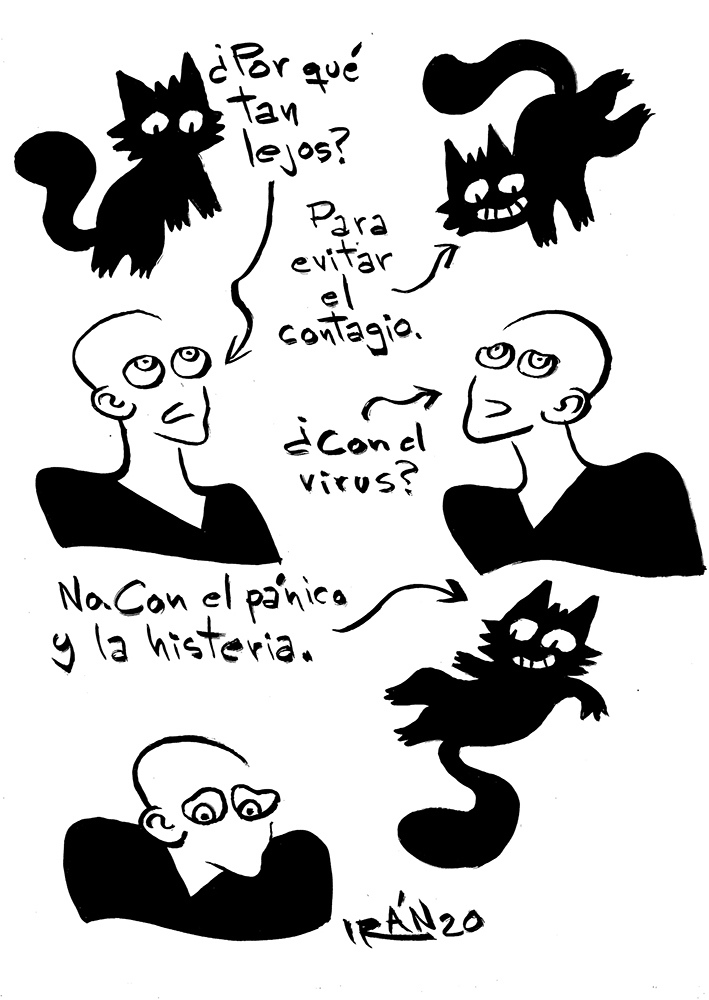 ¿Por qué
tan
lejos?
Para
evitar
el
contagio.
¿Con el
virus?
No. Con el pánico
y la histeria.
IRÁN 20